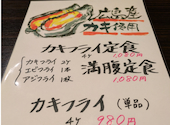 広島産
カキ使用
カキフライ定食
4ケ 1,080円
カキフライ 2ケ
エビフライ 1本
アジフライ 1枚
満腹定食
1,080円
カキフライ(単品)
4ケ 980円